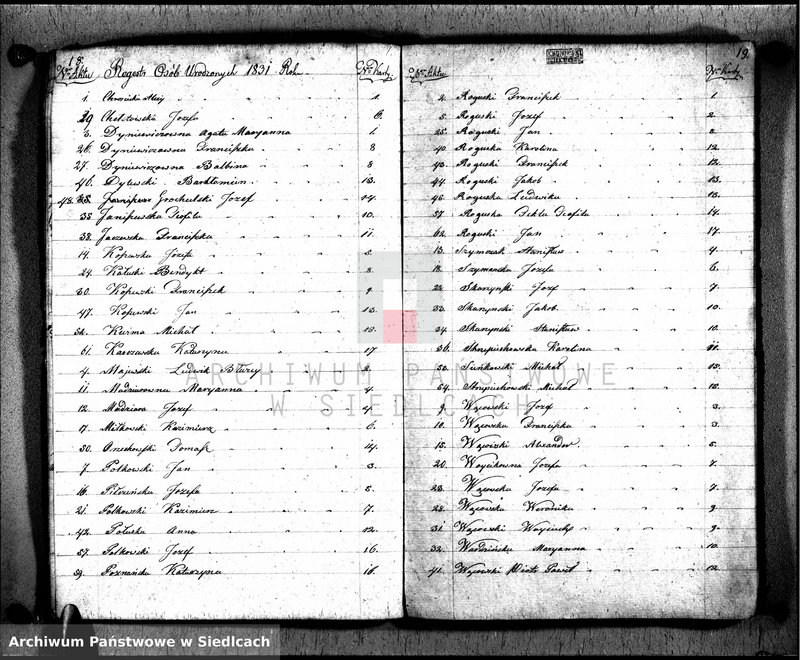 18.
Nr Aktu Regestr Osób Urodzonych 1831 Roku Nr Karty
1. 1.
29 Chełstowska Jozefa 6.
3. Dyniewiczowna Agata Maryanna 1.
26. Dyniewiczowna Franciszka 8
27. Dyniewiczowna Balbina 8
46. Dylewski Bartłomiey 13.
48. Grochulski Jozef 14.
35. Teofila 10.
38. Franciszka 11.
14. Kopewska Jozefa 5.
24. Kaluski Benedykt 8.
30. Kopewski Franciszek 9.
47. Kopewski Jan 13.
Kuzma Michał
61. Karczewska Katarzyna 17
4. Majewski Ludwik Błażey 2.
11. Madziarowna Maryanna 4.
12. Madziara Jozef 4.
17. Miłkowski Kazimierz 6.
50. Orzechowski Tomasz 14.
7. Polkowski Jan 3.
16. Jozefa 5.
21. Polkowski Kazimierz 7.
42. Anna 12.
57. Polkowski Jozef 16.
59. Poznańska Katarzyna 16
19.
Nr Aktu Nr Karty
2. Roguski Franciszek 1.
5. Roguski Jozef 2.
25. Roguski Jan 8.
40. Roguska Karolina 12.
43. Roguski Franciszek 12.
44. Roguski Jakob 13.
46. Roguska Ludwika 13.
51. Roguska Tekla Teofila 14.
62. Roguski Jan 17.
13. Szymczak Stanisław 4.
18. Szymanska Jozefa 6.
22. Skarzynski Jozef 7.
33. Skarzynski Jakob 10.
34. Skarzynski Stanisław 10.
36. Skrupichowska Karolina 11.
53. Sienkowski Michał 15.
54. Skrupichowski Michał 15.
9. Wąsowski Jozef 3.
10. Wąsowska Franciszka 3.
15. Wąsowski Alexander 5.
20. Woycikowna Jozefa 7.
23. Wąsowska Jozefa 7.
28. Wąsowska Weronika 9.
31. Wąsowski Woyciech 9.
32. Wardzińska Maryanna 10.
41. Wąsowski Piotr Paweł 12.
ARCHIWUM PAŃSTWOWE
W SIEDLCACH
Archiwum Państwowe w Siedlcach